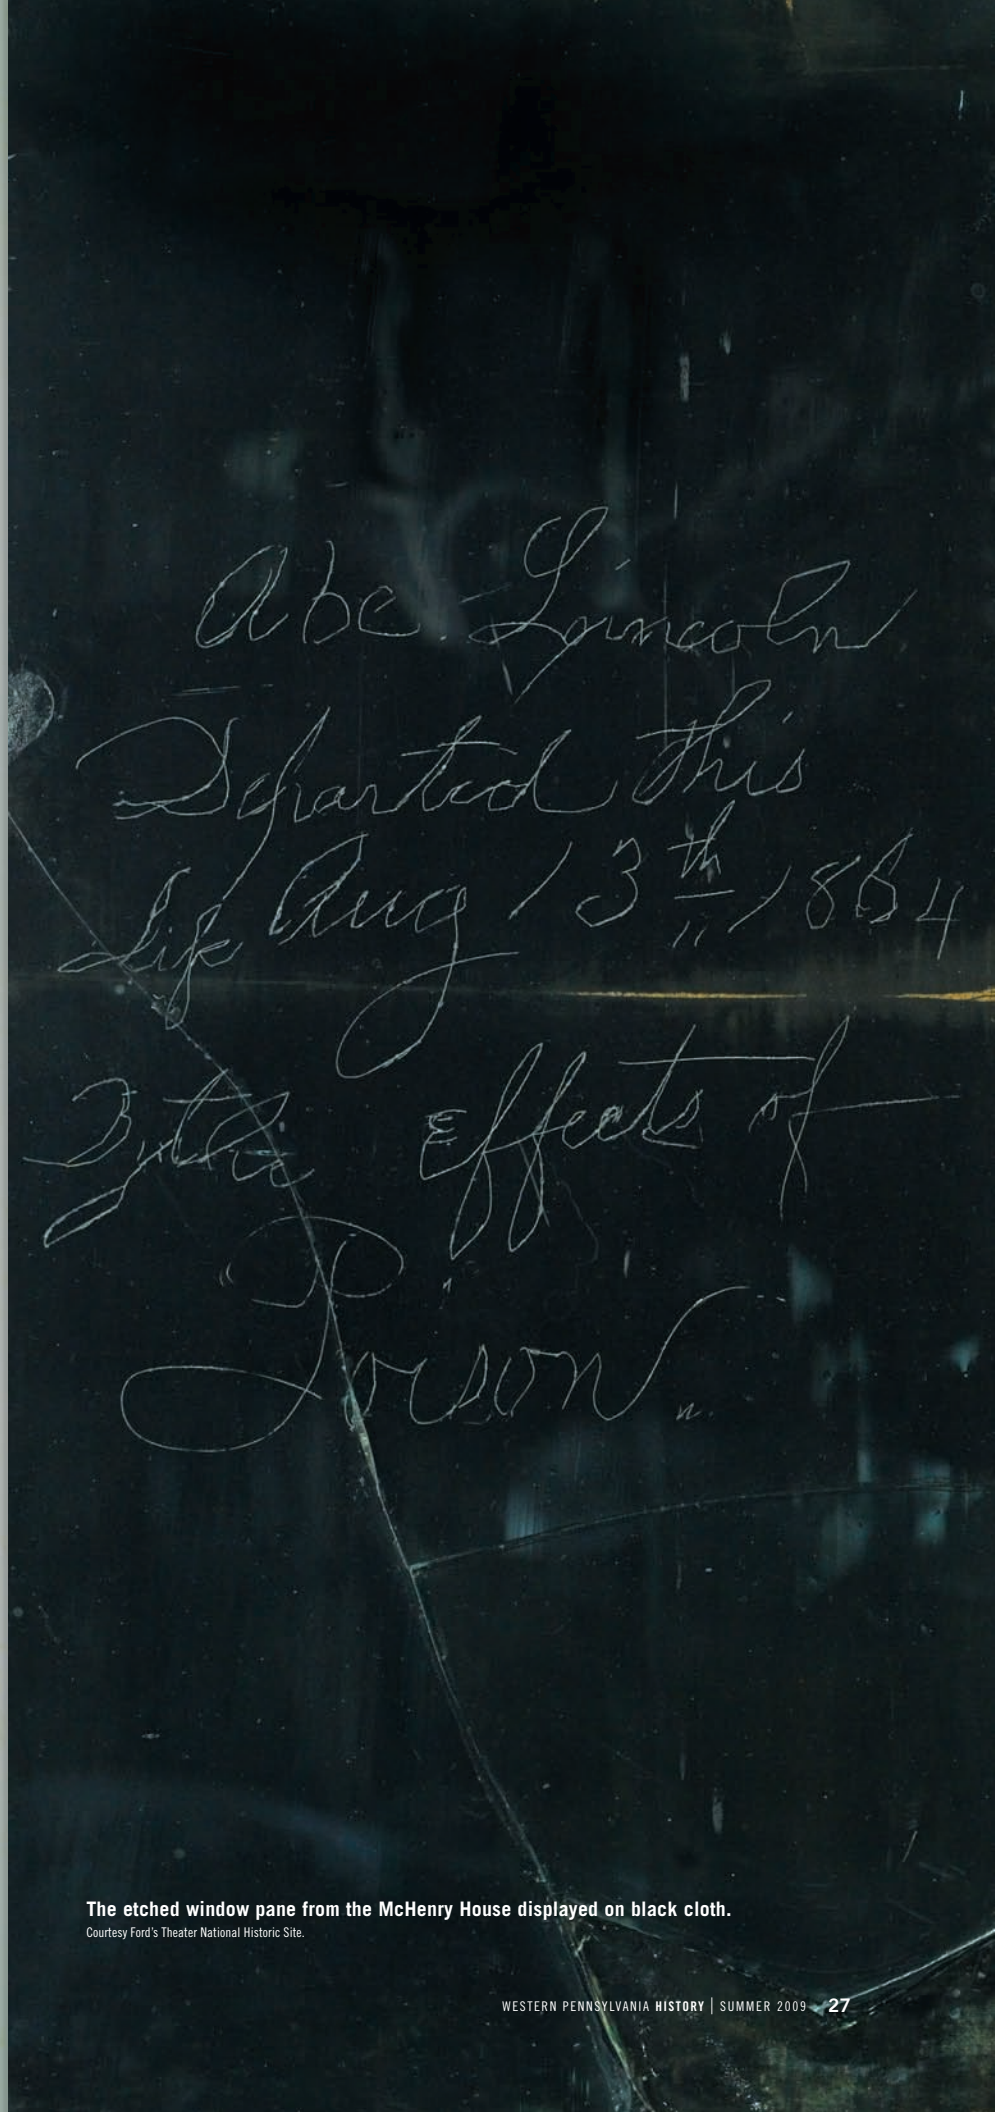 Abe Lincoln
Departed this
Life Aug 13th 1864
By the Effects of
Poison
The etched window pane from the McHenry House displayed on black cloth.
Courtesy Ford's Theater National Historic Site.
WESTERN PENNSYLVANIA HISTORY | SUMMER 2009 27